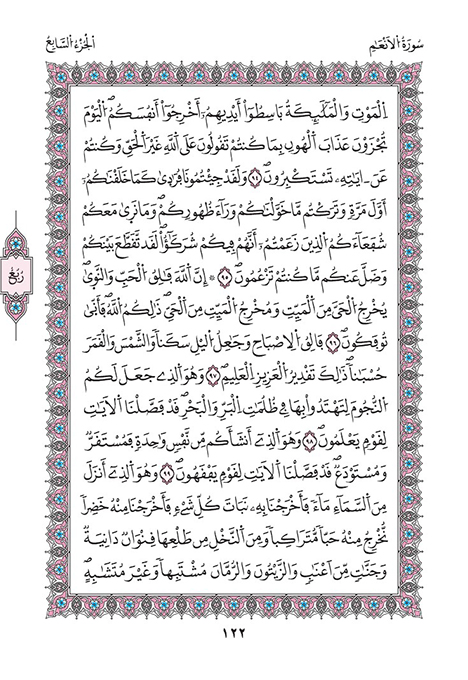 سُورَةُ اُلَانْعَٰمِ
اَلْجُزْءُ اُلسَّابِعُ
اِلْمَوْتِ وَالْمَلَٰٓئِكَةُ بَاسِطُوٓاْ أَيْدِيهِمُۥٓ أَخْرِجُوٓاْ أَنفُسَكُمُۖ اُلْيَوْمَ
تُجْزَوْنَ عَذَابَ اَلْهُونِ بِمَا كُنتُمْ تَقُولُونَ عَلَى اَللَّهِ غَيْرَ اَلْحَقِّ وَكُنتُمْ
عَنَ ايَٰتِهِۦ تَسْتَكْبِرُونَۖ ٩٤ وَلَقَدْ جِئْتُمُونَا فُرَٰدَىٰ كَمَا خَلَقْنَٰكُمُۥٓ
أَوَّلَ مَرَّةٖ وَتَرَكْتُم مَّا خَوَّلْنَٰكُمْ وَرَآءَ ظُهُورِكُمْۖ وَمَا نَرَىٰ مَعَكُمْ
شُفَعَآءَكُمُ اُلذِينَ زَعَمْتُمُۥٓ أَنَّهُمْ فِيكُمْ شُرَكَٰٓؤُاْۖ لَقَد تَّقَطَّعَ بَيْنَكُمْ
وَضَلَّ عَنكُم مَّا كُنتُمْ تَزْعُمُونَۖ ٩٥ ۞ إِنَّ اَللَّهَ فَٰلِقُ اُلْحَبِّ وَالنَّوَىٰۖ
رُبُعْ
يُخْرِجُ اُلْحَيَّ مِنَ اَلْمَيِّتِ وَمُخْرِجُ اُلْمَيِّتِ مِنَ اَلْحَيِّۖ ذَٰلِكُمُ اُللَّهُۖ فَأَنَّىٰ
تُوفَكُونَۖ ٩٦ فَالِقُ اُلِاصْبَاحِ وَجَٰعِلُ اُليْلِ سَكَناٗ وَالشَّمْسَ وَالْقَمَرَ
حُسْبَٰناٗۖ ذَٰلِكَ تَقْدِيرُ اُلْعَزِيزِ اِلْعَلِيمِۖ ٩٧ وَهُوَ اَلذِے جَعَلَ لَكُمُ
اُلنُّجُومَ لِتَهْتَدُواْ بِهَا فِے ظُلُمَٰتِ اِلْبَرِّ وَالْبَحْرِۖ قَدْ فَصَّلْنَا اَلَايَٰتِ
لِقَوْمٖ يَعْلَمُونَۖ ٩٨ وَهُوَ اَلذِےٓ أَنشَأَكُم مِّن نَّفْسٖ وَٰحِدَةٖ فَمُسْتَقَرّٞ
وَمُسْتَوْدَعٞۖ قَدْ فَصَّلْنَا اَلَايَٰتِ لِقَوْمٖ يَفْقَهُونَۖ ٩٩ وَهُوَ اَلذِےٓ أَنزَلَ
مِنَ اَلسَّمَآءِ مَآءٗ فَأَخْرَجْنَا بِهِۦ نَبَاتَ كُلِّ شَےْءٖ فَأَخْرَجْنَا مِنْهُ خَضِراٗ
نُّخْرِجُ مِنْهُ حَبّاٗ مُّتَرَاكِباٗۖ وَمِنَ اَلنَّخْلِ مِن طَلْعِهَا قِنْوَانٞ دَانِيَةٞ
وَجَنَّٰتٖ مِّنَ اَعْنَٰبٖ وَالزَّيْتُونَ وَالرُّمَّانَ مُشْتَبِهاٗ وَغَيْرَ مُتَشَٰبِهٍۖ
١٢٢